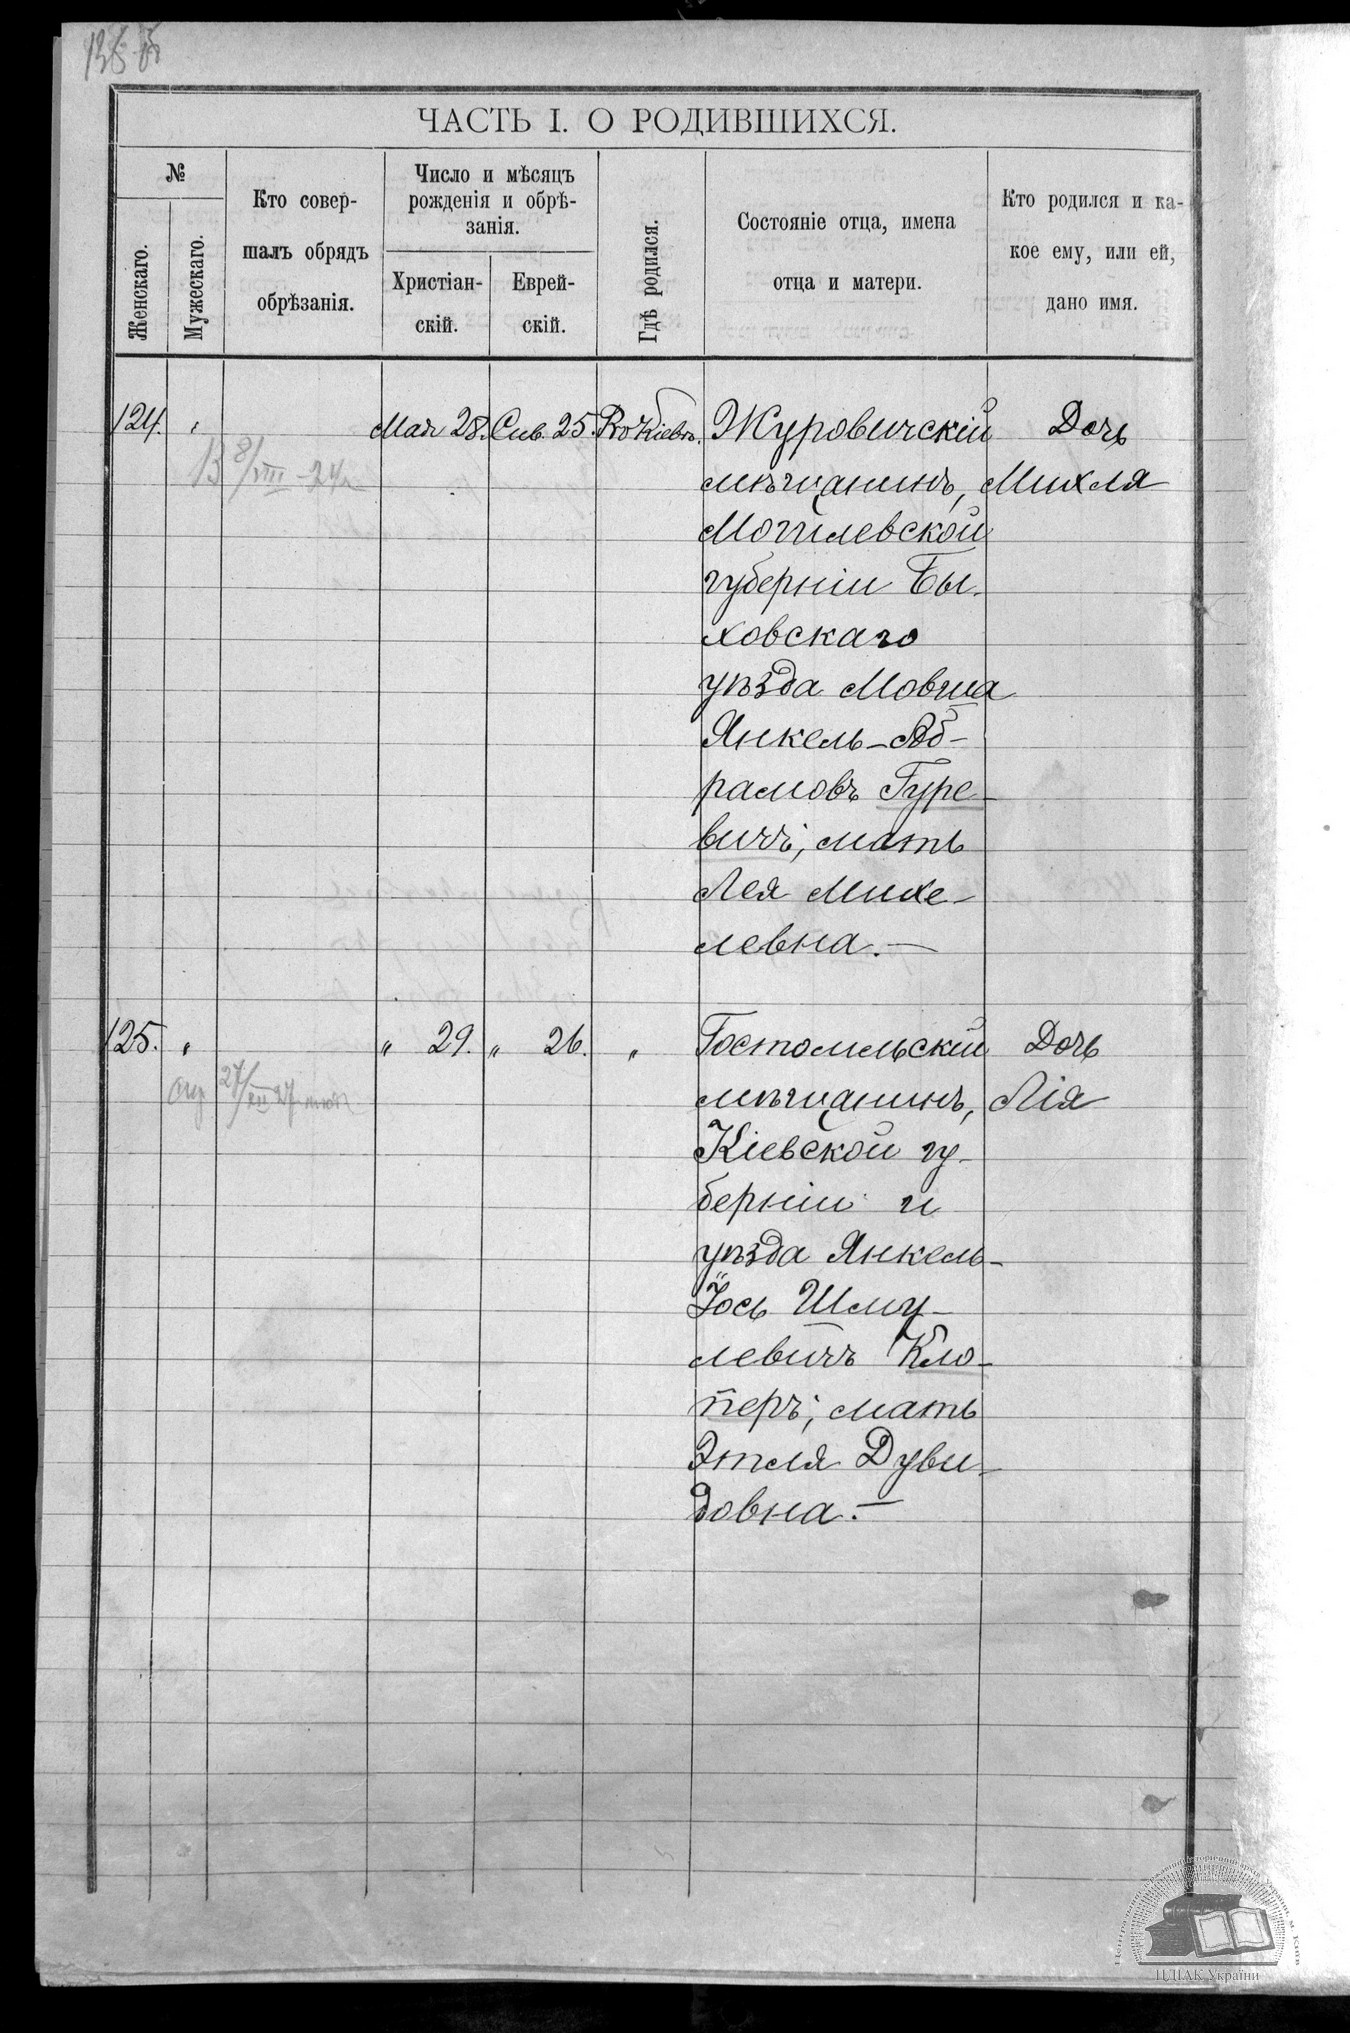 ЧАСТЬ I. О РОДИВШИХСЯ.
№
Женскаго.
Мужескаго.
Кто совер-
шалъ обрядъ
обрѣзанія.
Число и мѣсяцъ
рожденія и обрѣ-
занія.
Христіан-
скій.
Еврей-
скій.
Гдѣ родился.
Состояніе отца, имена
отца и матери.
Кто родился и ка-
кое ему, или ей,
дано имя.
124. " Мая 28. Сив. 25. Въ Кіевѣ. Журовичскій Дочь
мѣщанинъ, Михля
Могилевской
губерніи Бы-
ховскаго
уѣзда Мовша
Янкель-Аб-
рамовъ Гуре-
вичъ, мать
Лея Михе-
левна.—
125. " " 29. " 26. " Гостомльскій Дочь
мѣщанинъ, Лія
Кіевской гу-
берніи и
уѣзда Янкель-
Іось Шму-
левичъ Кло-
перъ, мать
Этля Дуви-
довна.—
ЦДІАК України